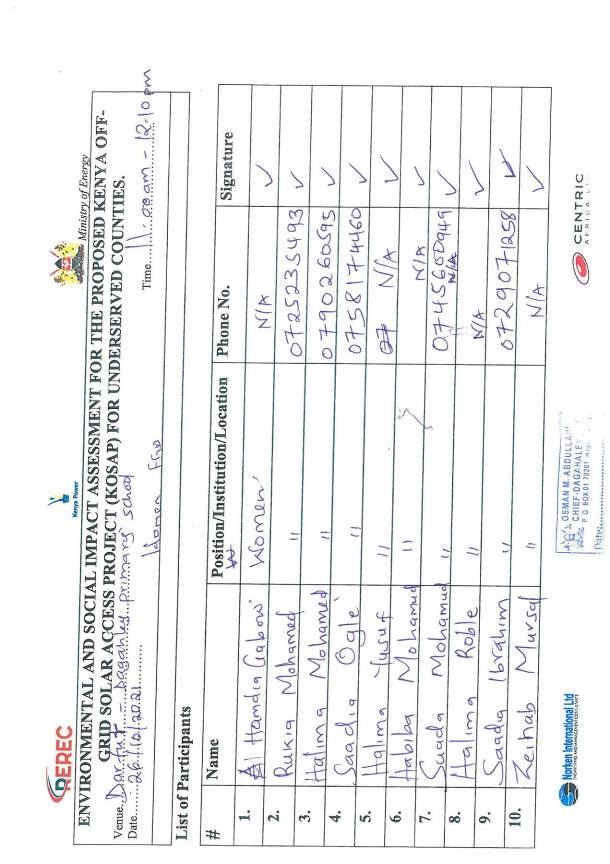 REREC
Kenya Power
Ministry of Energy
ENVIRONMENTAL AND SOCIAL IMPACT ASSESSMENT FOR THE PROPOSED KENYA OFF-
GRID SOLAR ACCESS PROJECT (KOSAP) FOR UNDERSERVED COUNTIES.
Venue. Dagahley primary school
Date 26/10/2021 Time 11:00am - 12:10pm
Women
List of Participants
# Name Position/Institution/Location Phone No. Signature
1. Hamdia Gabow Women N/A ✓
2. Rukia Mohamed " 0725235493 ✓
3. Halima Mohamed " 0790260595 ✓
4. Saadia Ogle " 0758174460 ✓
5. Halima Yusuf " N/A ✓
6. Habiba Mohamud " N/A ✓
7. Suada Mohamud " 0745600949 ✓
8. Halima Roble " N/A ✓
9. Saadia Ibrahim " 0729071258 ✓
10. Zeihab Mursal " N/A ✓
Norken International Ltd
OSMAN M. ABDULLAHI
CHIEF-DAGAHALEY
P O BOX 01 70201
Date:
CENTRIC
AFRICA LTD